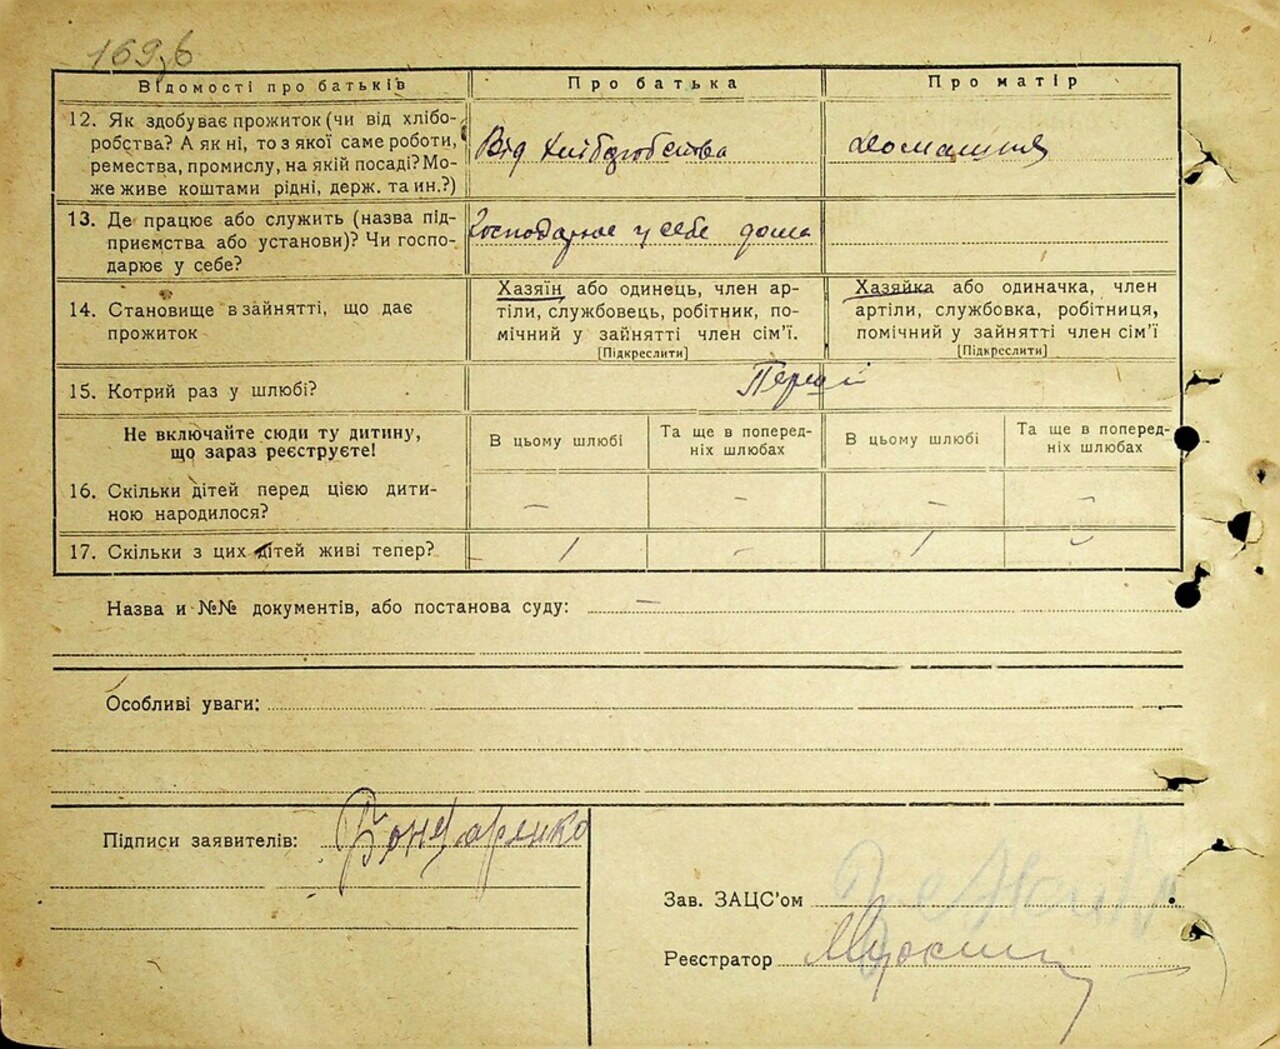 169зв
Відомості про батьків Про батька Про матір
12. Як здобуває прожиток (чи від хлібо-
робства? А як ні, то з якої саме роботи,
ремества, промислу, на якій посаді? Мо-
же живе коштами рідні, держ. та ин.?)
Від хліборобства
домашня
13. Де працює або служить (назва під-
приємства або установи)? Чи госпо-
дарює у себе?
Господарює у себе дома
14. Становище в зайнятті, що дає
прожиток
Хазяїн або одинець, член ар-
тіли, службовець, робітник, по-
мічний у зайнятті член сім'ї.
[Підкреслити]
Хазяйка або одиначка, член
артіли, службовка, робітниця,
помічний у зайнятті член сім'ї
[Підкреслити]
15. Котрий раз у шлюбі?
Перший
Не включайте сюди ту дитину,
що зараз реєструєте!
В цьому шлюбі
Та ще в поперед-
ніх шлюбах
В цьому шлюбі
Та ще в поперед-
ніх шлюбах
16. Скільки дітей перед цією дити-
ною народилося?
– – – –
17. Скільки з цих дітей живі тепер?
/ – / –
Назва и №№ документів, або постанова суду: –
Особливі уваги:
Підписи заявителів: Бондаренко
Зав. ЗАЦС'ом
Реєстратор